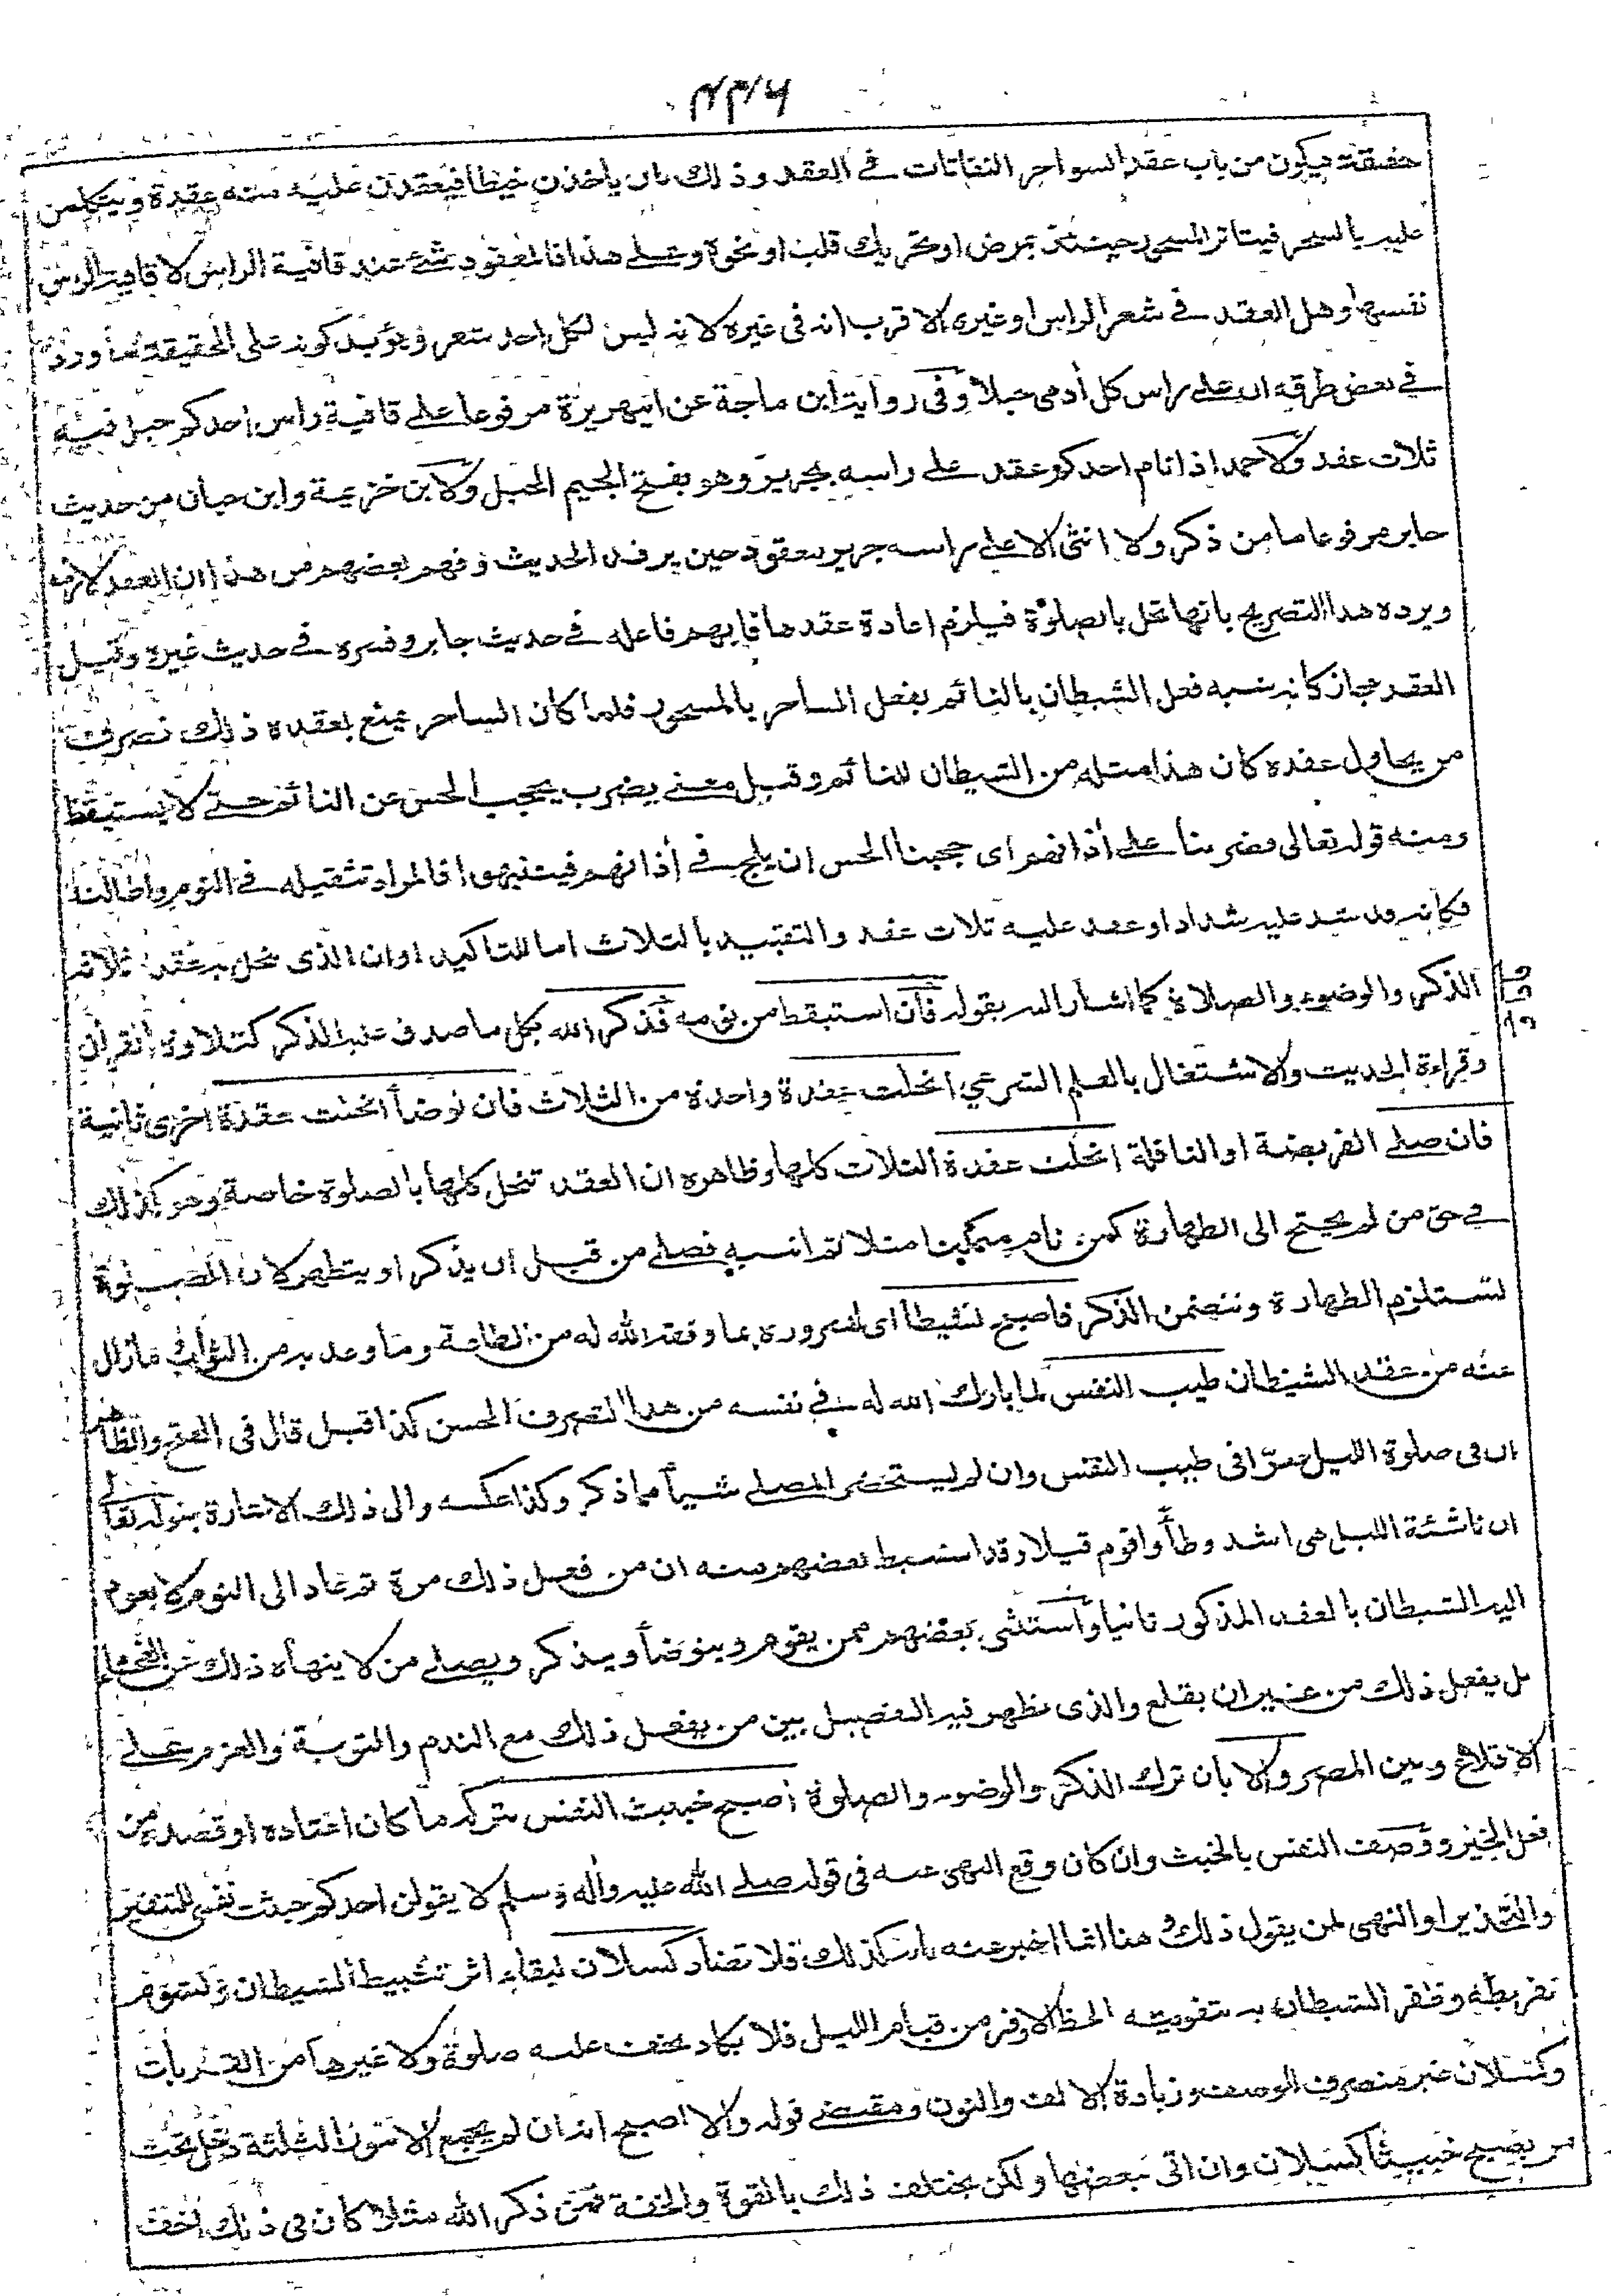 حقيقة فيكون من باب عقد السواحر النفاثات في العقد وذلك بان ياخذن خيطا فيعقدن عليه منه عقدة ويتكلمن
عليه بالسحر فيتاثر المسحور حينئذ بمرض او تحريك قلب او نحوه وعلى هذا فالمعقود شئ عند قافية الراس لا قافية الراس
نفسها وهل العقد في شعر الراس او غيره الاقرب انه في غيره لانه ليس لكل احد شعر ويؤيد كونه على الحقيقة ما ورد
في بعض طرقه ان على راس كل أدمى حبلا وفى رواية ابن ماجة عن ابيهريرة مرفوعا على قافية راس احدكم حبل فيه
ثلاث عقد ولاحمد اذا نام احدكم عقد على راسه بجرير وهو بفتح الجيم الحبل ولابن خزيمة وابن حبان من حديث
جابر مرفوعا ما من ذكر ولا انثى الا على راسه جرير معقود حين يرقد الحديث وفهم بعضهم من هذا ان العقد لازمة
ويرده هذا التصريح بانها تحل بالصلوة فيلزم اعادة عقدها فابهم فاعله في حديث جابر وفسره في حديث غيره وقيل
العقد مجاز كانه شبه فعل الشيطان بالنائم بفعل الساحر بالمسحور فلما كان الساحر يمنع بعقده ذلك تصرف
من يحاول عقده كان هذا مثله من الشيطان للنائم وقيل معنى يضرب يحجب الحس عن النائم حتى لا يستيقظ
ومنه قوله تعالى فضربنا على أذانهم اى حجبنا الحس ان يلج في أذانهم فيتنبهوا فالمراد تثقيله في النوم واطالته
فكانه قد شد عليه شدادا وعقد عليه ثلاث عقد والتقييد بالثلاث اما للتاكيد او ان الذى ينحل به عقده ثلاثة
الذكر والوضوء والصلاة كما اشار اليه بقوله فان استيقظ من نومه فذكر الله بكل ما صدق عليه الذكر كتلاوة القرأن
وقراءة الحديث والاشتغال بالعلم الشرعي انحلت عقدة واحدة من الثلاث فان توضأ انحلت عقدة اخرى ثانية
فان صلى الفريضة او النافلة انحلت عقدة الثلاث كلها وظاهره ان العقد تنحل كلها بالصلوة خاصة وهو كذلك
في حق من لم يحتج الى الطهارة كمن نام متمكنا مثلا ثم انتبه فصلى من قبل ان يذكر او يتطهر لان الصلوة
تستلزم الطهارة وتتضمن الذكر فاصبح نشيطا اى لسروره بما وفقه الله له من الطاعة وما وعد به من الثواب وما زال
عنه من عقد الشيطان طيب النفس لما بارك الله له في نفسه من هذا التصرف الحسن كذا قيل قال فى الفتح والظاهر
ان فى صلوة الليل سرّا فى طيب النفس وان لم يستحضر المصلى شيأ مما ذكر وكذا عكسه والى ذلك الاشارة بقوله تعالى
ان ناشئة الليل هى اشد وطأ واقوم قيلا وقد استنبط بعضهم منه ان من فعل ذلك مرة ثم عاد الى النوم لا يعود
اليه الشيطان بالعقد المذكور ثانيا واستثنى بعضهم ممن يقوم ويتوضأ ويذكر ويصلى من لا ينهأه ذلك عن الفحشاء
بل يفعل ذلك من غير ان يقلع والذى يظهر فيه التفصيل بين من يفعل ذلك مع الندم والتوبة والعزم على
الاقلاع وبين المصر والا بان ترك الذكر والوضوء والصلوة اصبح خبيث النفس بتركه ما كان اعتاده او قصده من
فعل الخير ووصف النفس بالخبث وان كان وقع النهى عنه فى قوله صلى الله عليه وأله وسلم لا يقولن احدكم خبثت نفسى للتنفير
والتحذير او النهى لمن يقول ذلك وهنا انما اخبر عنه بانه كذلك فلا تضاد كسلان لبقاء اثر تثبيط الشيطان ولشؤم
تفريطه وظفر الشيطان به بتفويته الحظ الاوفر من قيام الليل فلا يكاد يخف عليه صلوة ولا غيرها من القربات
وكسلان غير منصرف للوصف وزيادة الالف والنون ومقتضى قوله والا اصبح انه ان لم يجمع الامور الثلثة دخل تحت
من يصبح خبيثا كسلان وان اتى ببعضها ولكن يختلف ذلك بالقوة والخفة فمن ذكر الله مثلا كان فى ذلك اخف